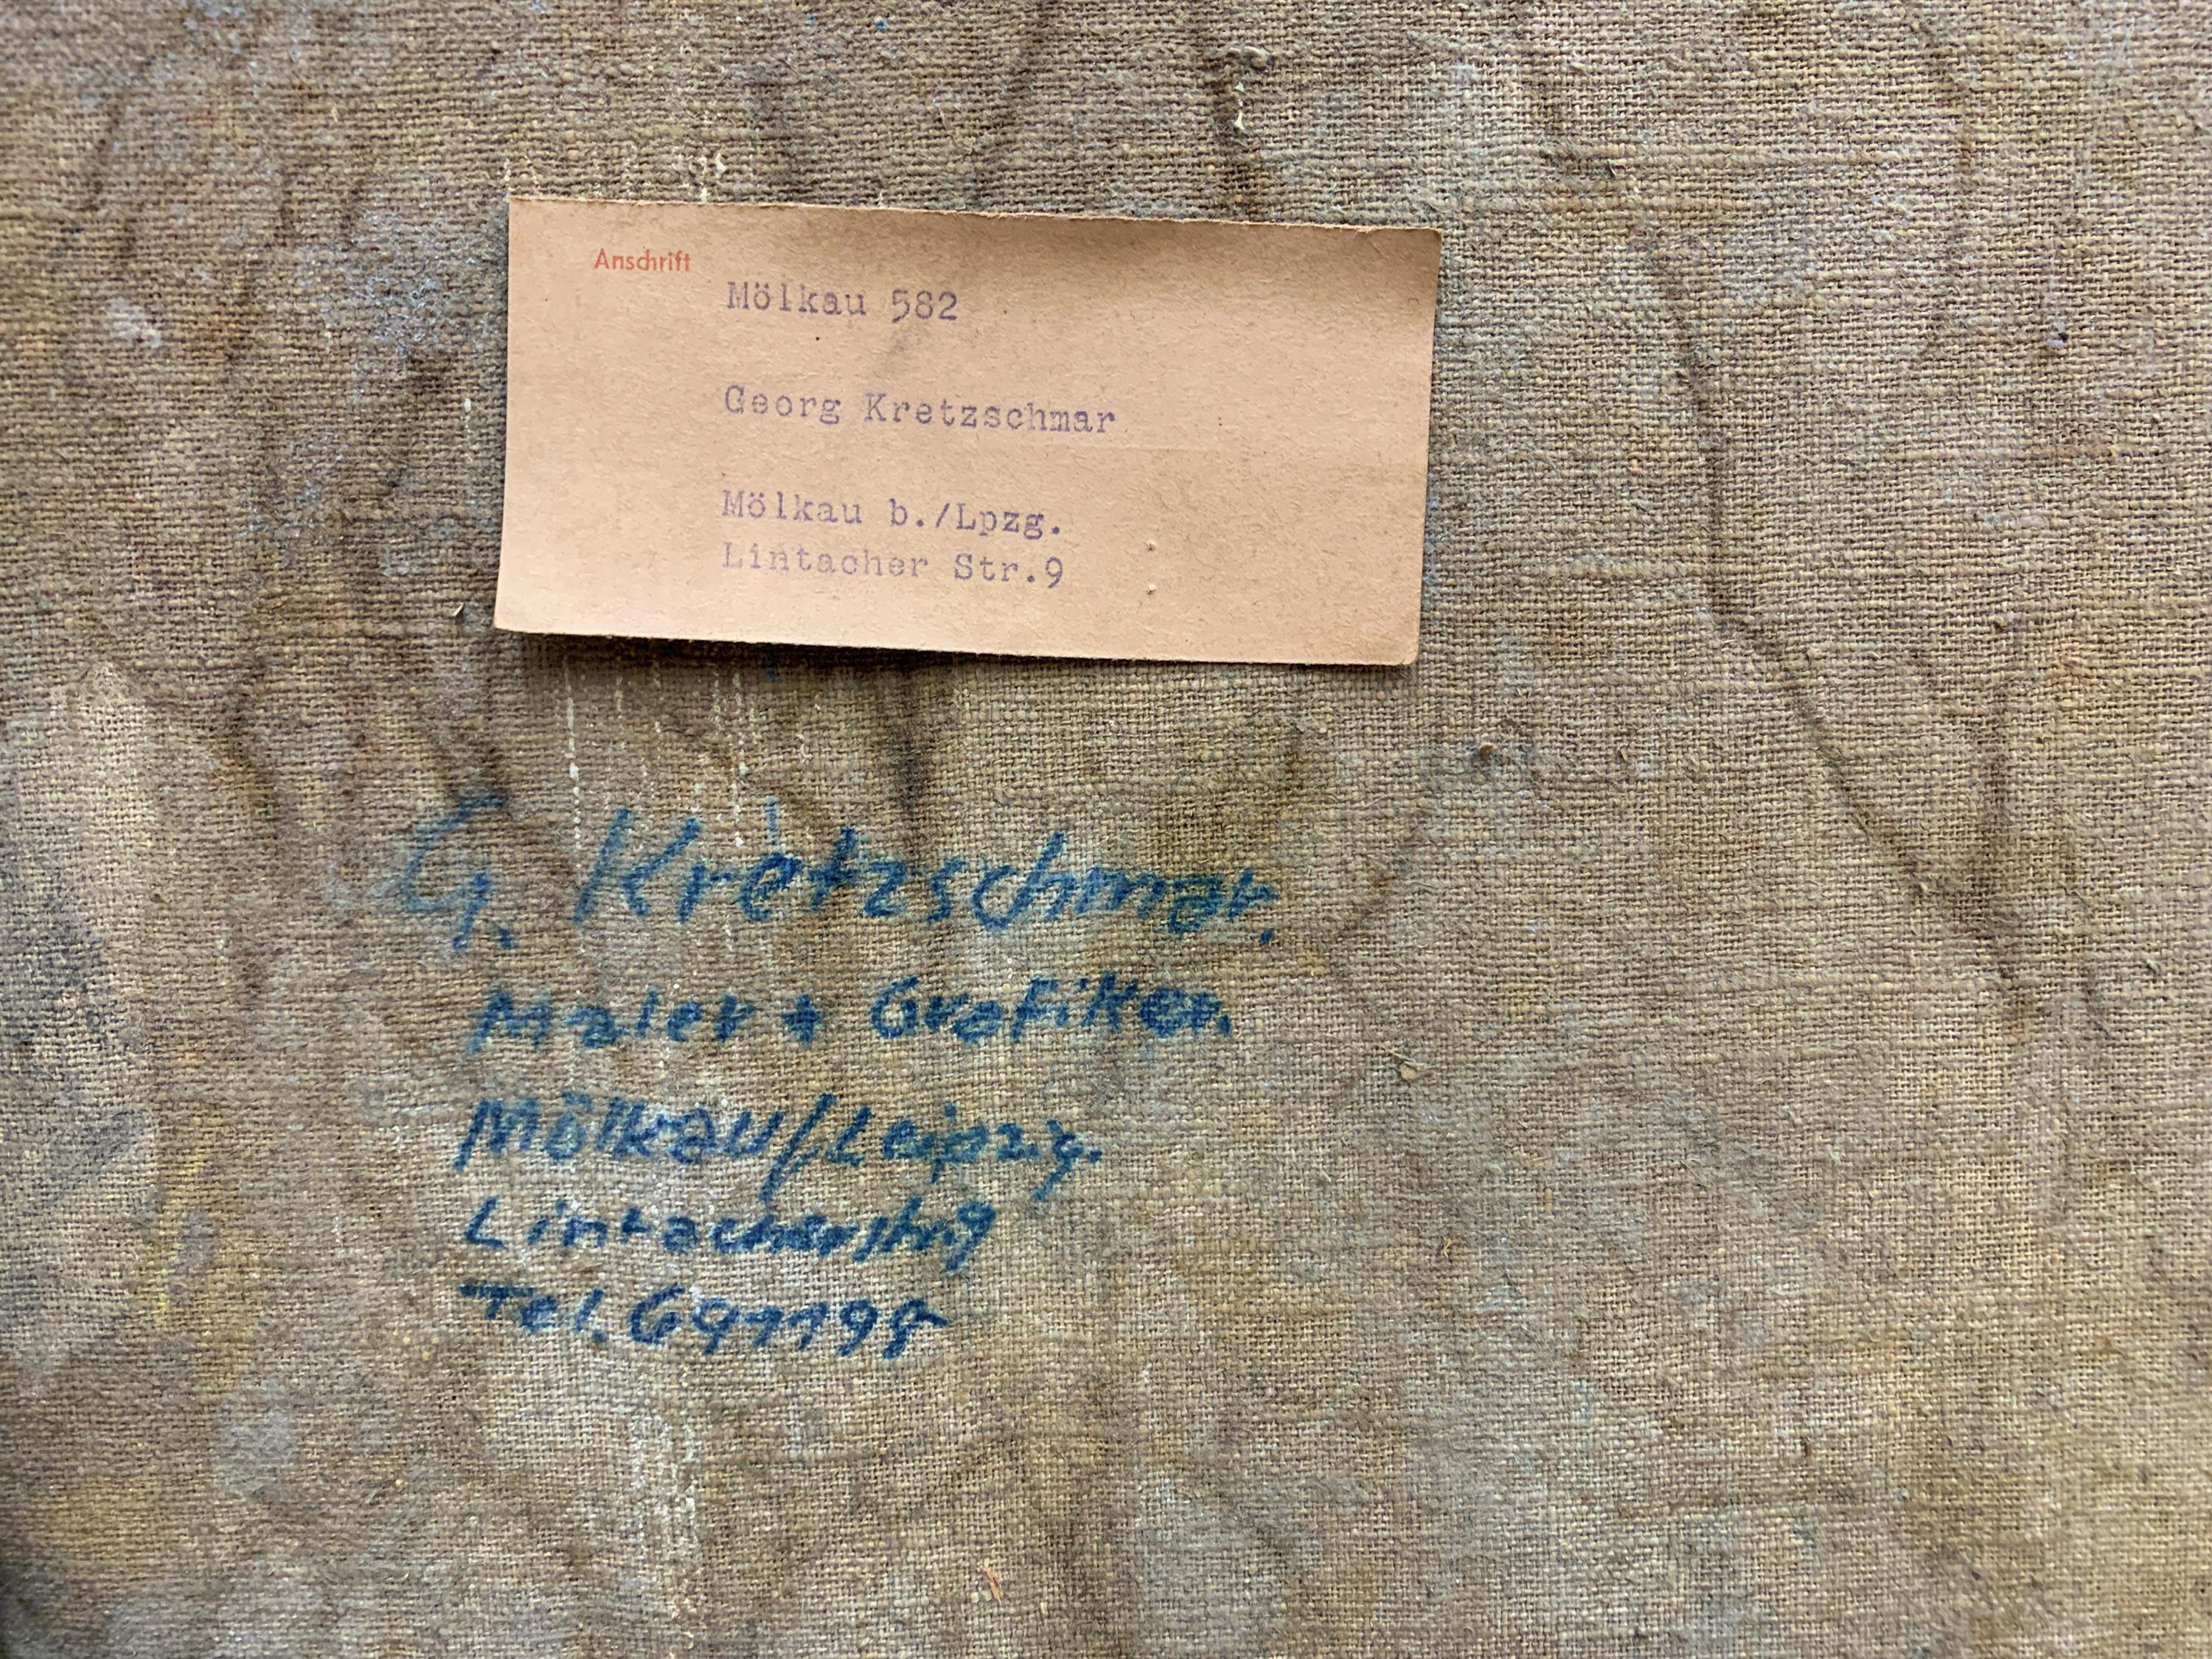 Anschrift
Mölkau 582
Georg Kretzschmar
Mölkau b./Lpzg.
Lintacher Str.9
G. Kretzschmar.
Maler + Grafiker.
Mölkau/Leipzig.
Lintacherstr 9
Tel. 691198